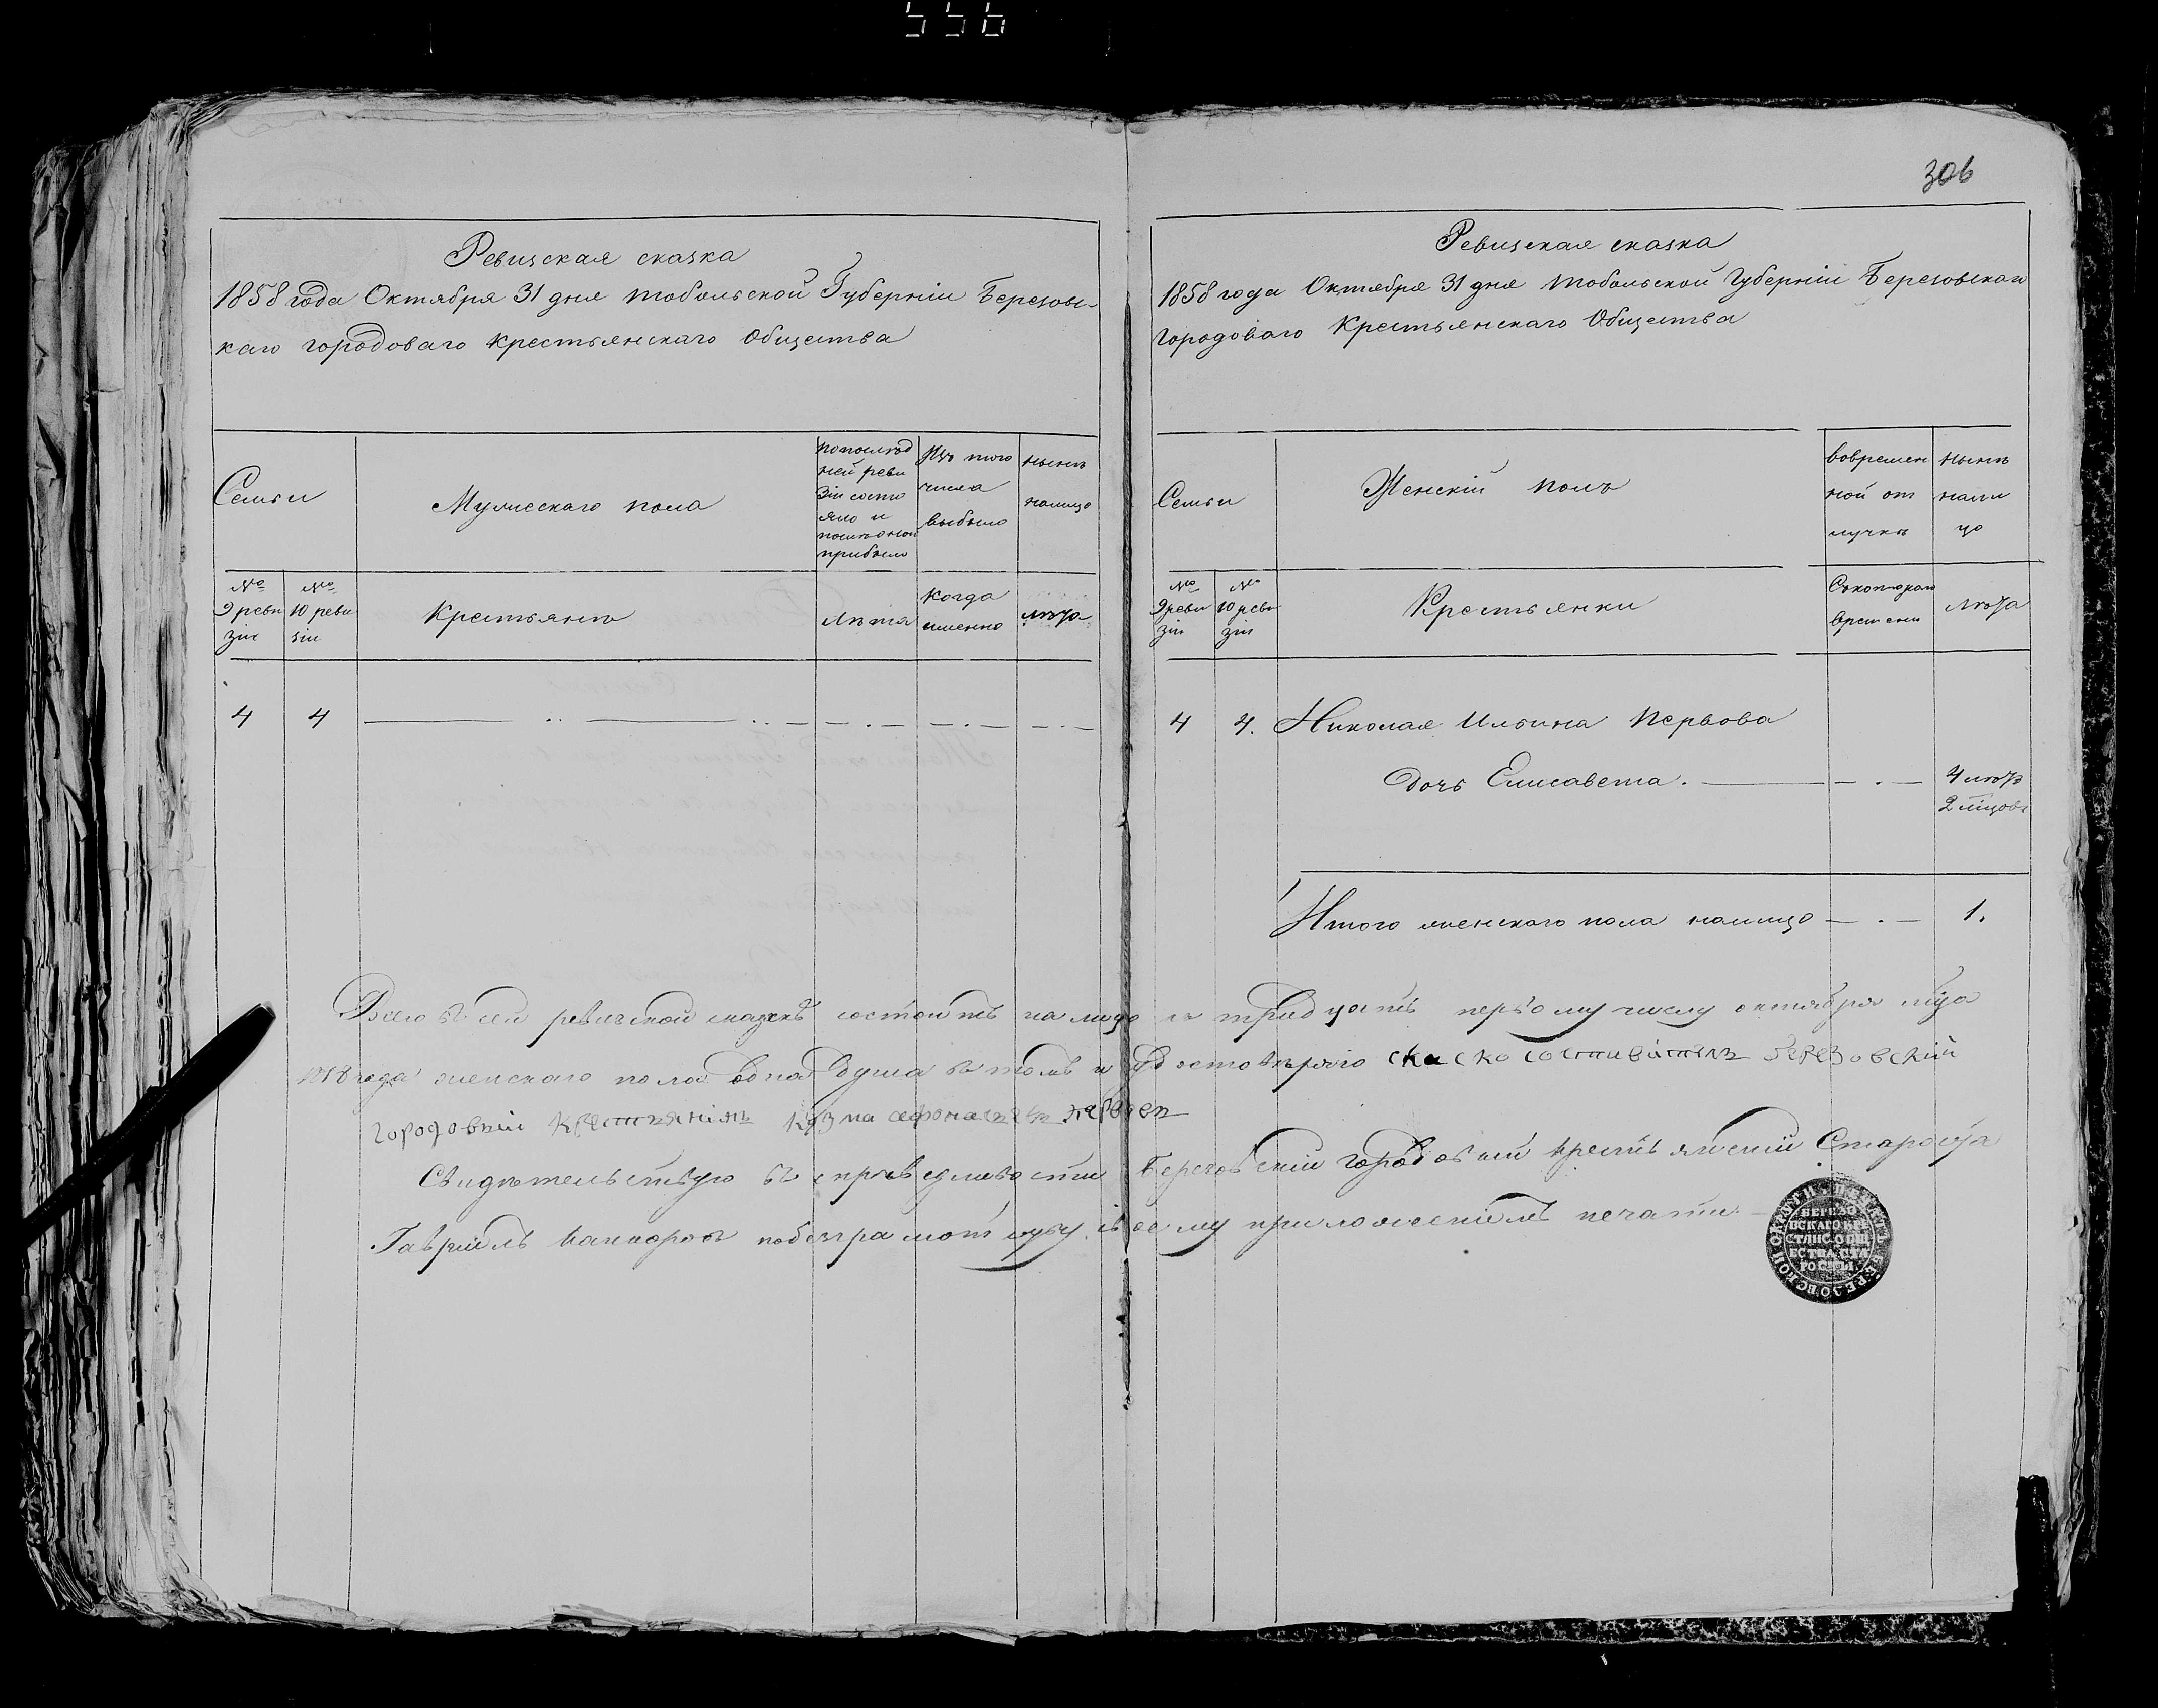 556
306
Ревизская сказка
1858 года Октября 31 дня Тобольской Губерніи Березовс-
каго городоваго крестьянскаго Общества
Семьи
Мужескаго пола
попослѣд
ней реви
зіи состо
яло и
послѣ оной
прибыло
Изъ того
числа
выбыло
нынѣ
налицо
№
9 реви
зіи
№
10 реви
зіи
Крестьянъ
Лѣта
Когда
именно
лѣта
4 4
Ревизская сказка
1858 года Октября 31 дня Тобольской Губерніи Березовскаго
Городоваго Крестьянскаго Общества
Семьи
Женскій полъ
вовремен
ной от
лучкѣ
нынѣ
нали
цо
№
9 реви
зіи
№
10 реви
зіи
Крестьянки
Съкотораго
времени
лѣта
4 4. Николая Ильина Первова
Дочь Елисавета. 4 лѣтъ
2 мѣцовъ
Итого женскаго пола налицо 1.
Всего въ сей ревизской сказкѣ состоитъ на лицо къ тридцать первому числу октября мѣца
1858 года женскаго пола одна душа въ томъ и скаско составителъ березовский
городовый крестъянінъ первовъ
Свидѣтельствую въ справедливости Березовскій городовый крестьянскій Староста
Гавріилъ побезграмотству своему приложеніемъ печати
БЕРЕЗО
ВСКАГО КРЕ
СТЯНС. ОБЩ
ЕСТВА СТА
РОСТЫ